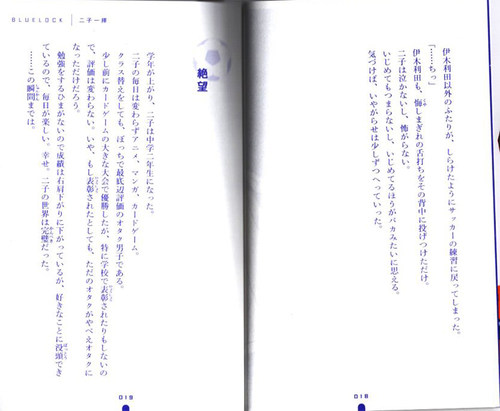 伊木利田以外のふたりが、しらけたようにサッカーの練習に戻ってしまった。
「……ちっ」
伊木利田も、悔しまぎれの舌打ちをその背中に投げつけただけ。
二子は泣かないし、怖がらない。
いじめてもつまらないし、いじめてるほうがバカみたいに思える。
気づけば、いやがらせは少しずつへっていった。
018
BLUELOCK 二子一揮
絶望
学年が上がり、二子は中学二年生になった。
二子の毎日は変わらずアニメ、マンガ、カードゲーム。
クラス替えをしても、ぼっちで最底辺評価のオタク男子である。
少し前にカードゲームの大きな大会で優勝したが、特に学校で表彰されたりもしないの
で、評価は変わらない。いや、もし表彰されたとしても、ただのオタクがやべえオタクに
なっただけだろう。
勉強をするひまがないので成績は右肩下がりに下がっているが、好きなことに没頭でき
ているので、毎日が楽しい。幸せ。二子の世界は完璧だった。
……この瞬間までは。
019